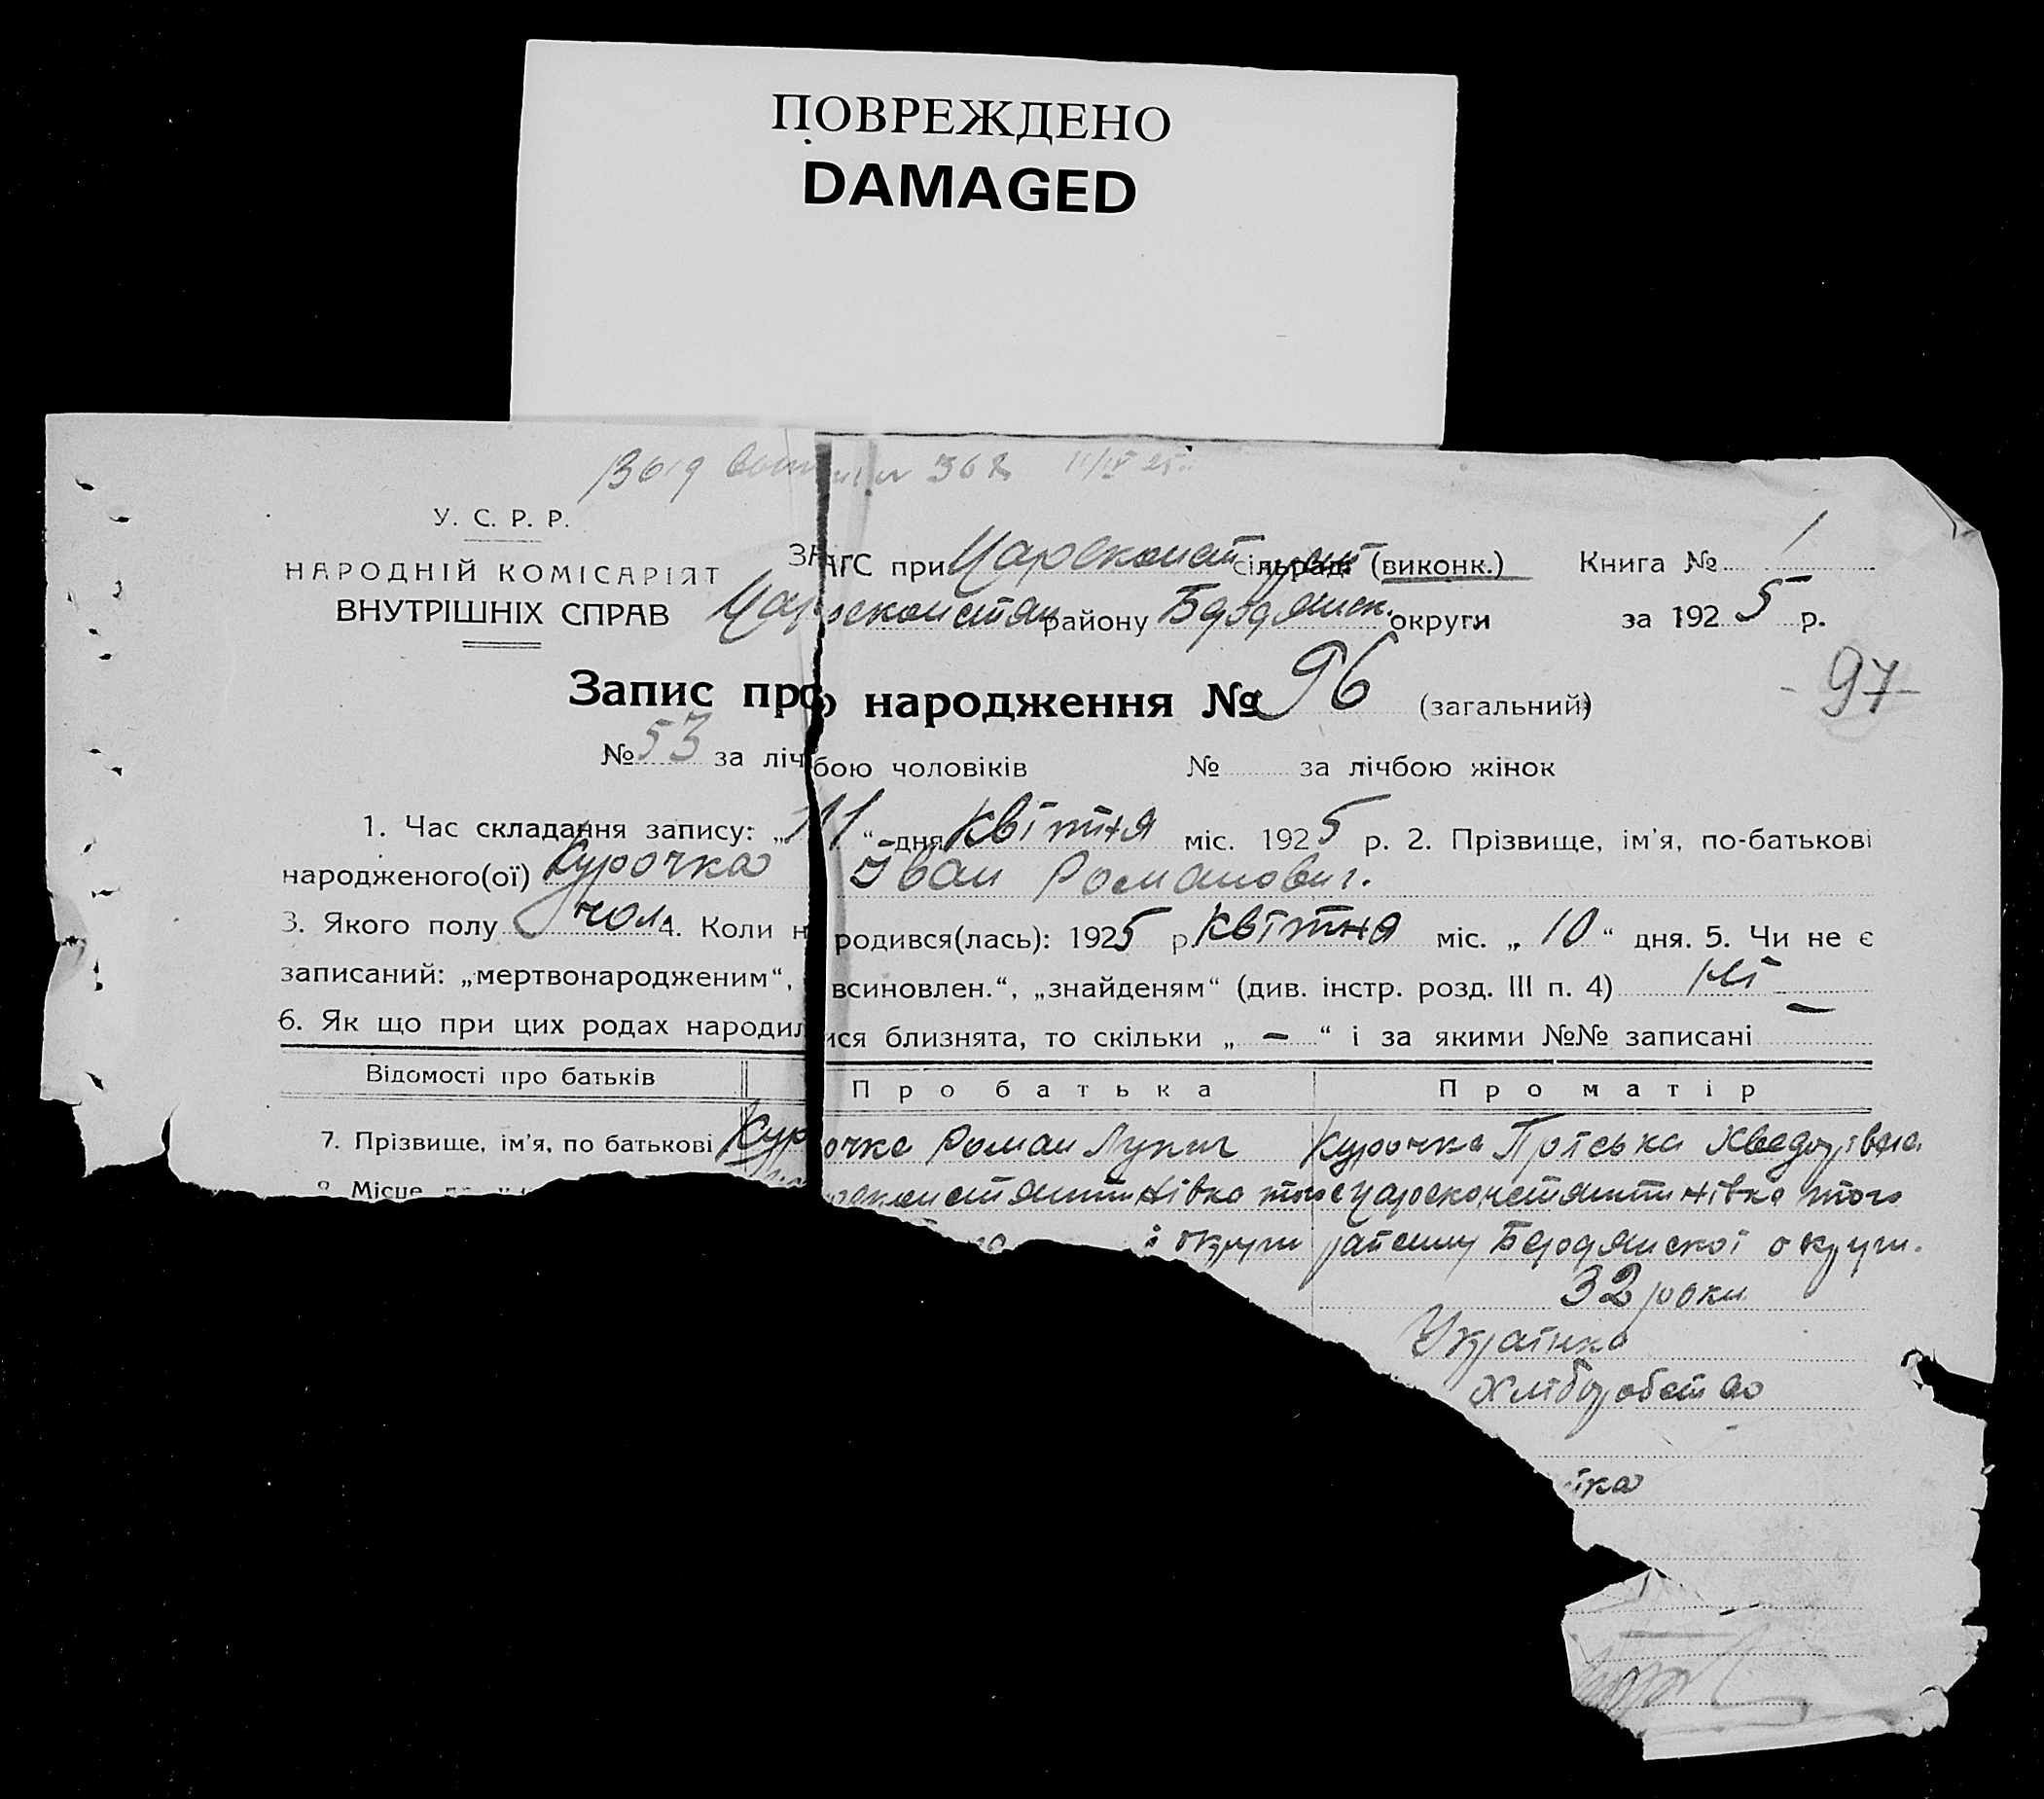 ПОВРЕЖДЕНО
DAMAGED
36 11/IV 25
У. С. Р. Р.
НАРОДНІЙ КОМІСАРІЯТ
ВНУТРІШНІХ СПРАВ
ЗАГС при Цареконст сільраді (виконк.) Книга № 1
Цареконстан району Бердянськ. округи за 1925 р.
Запис про народження № 96 (загальний)
- 97 -
№ 53 за лічбою чоловіків № за лічбою жінок
1. Час складання запису: „11“ дня квітня міс. 1925 р. 2. Прізвище, ім'я, по-батькові
народженого(ої) Курочка Іван Романович.
3. Якого полу чол 4. Коли народився(лась): 1925 р. квітня міс. „10“ дня. 5. Чи не є
записаний: „мертвонародженим“, всиновлен.“, „знайденям“ (див. інстр. розд. III п. 4) ні —
6. Як що при цих родах народилися близнята, то скільки „ — “ і за якими №№ записані
Відомості про батьків Про батька Про матір
7. Прізвище, ім'я, по батькові Курочка Роман Лукич Курочка Пріська Хведорівна
Місце реконстянтинівка того с Цареконстянтинівка того
округи району Бердянської округи.
32 роки
Українка
Хліборобство
іка